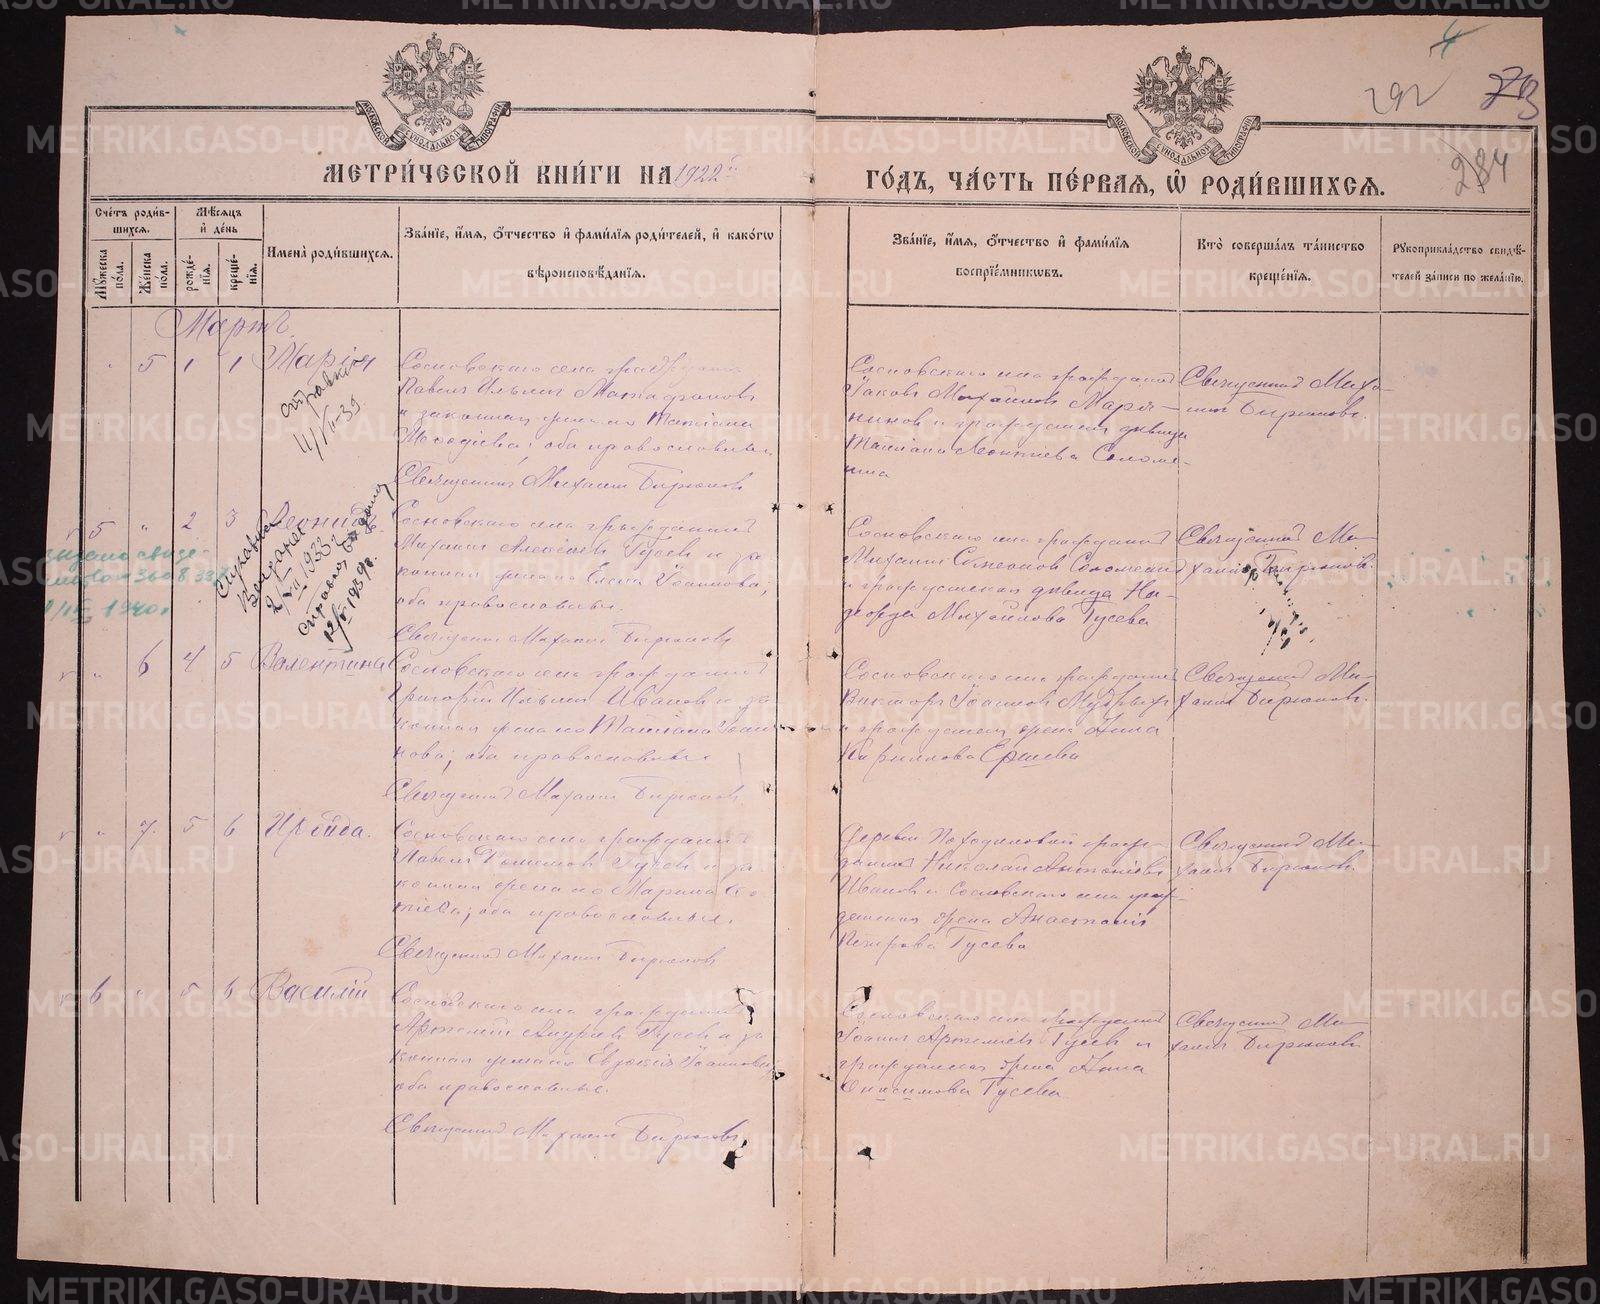 МЕТРИ́ЧЕСКОЙ КНИ́ГИ НА 1922й
ГО́ДЪ, ЧА́СТЬ ПЕ́РВАЯ, Ѡ҆ РОДИ́ВШИХСѦ.
292
284
Сче́тъ роди́в-
шихсѧ.
Мѣ́сѧцъ
и҆ де́нь
Мꙋжеска по́ла.
Же́нска по́ла.
рожде́-
нїѧ.
креще́-
нїѧ.
Имена̀ роди́вшихсѧ.
Зва́нїе, и҆́мѧ, ѻ҆́тчество и҆ фами́лїѧ роди́телей, и҆ како́гѡ
вѣроисповѣ́данїѧ.
Зва́нїе, и҆́мѧ, ѻ҆́тчество и҆ фами́лїѧ
воспрїе́мникѡвъ.
Кто̀ соверша́лъ та́инство
креще́нїѧ.
Рꙋкоприкла́дство свидѣ́-
телей за́писи по жела́нїю.
Мартъ.
5 1 1 Марія
Сосновскаго села гражданинъ
Павелъ Ильинъ
и законная жена его Татіана
Меѳодіева; оба православные
Священникъ Михаилъ Бирюковъ
Сосновскаго села гражданинъ
Іаковъ Михаиловъ Маря-
нинов и гражданская девица
Татіана Леонтиева Соломе-
ина
Священникъ Миха-
илъ Бирюковъ.
справка
5 " 2 3 Леонидъ.
Сосновскаго села гражданинъ
Михаилъ Алексіевъ Гусев и за-
конная жена его Елена Іоаннова;
оба православные.
Священникъ Михаилъ Бирюковъ
Сосновскаго села гражданинъ
Михаилъ Симеонов Соломеин
и гражданская девица Ни-
Михаилова Гусева
Священникъ Ми-
хаилъ Бирюковъ.
выдано свиде-
1940г
Справка
1933г
справка
1939г.
" 6 4 5 Валентина
Сосновскаго села гражданинъ
Григорій Ильинъ Иванов и за-
конная жена его Татіана Іоан-
нова; оба православные.
Священникъ Михаилъ Бирюковъ
Сосновскаго села гражданинъ
Викторъ Іоаннов Мудрых
и гражданская жена Анна
Кириллова Ершева
Священникъ Ми-
хаилъ Бирюковъ.
" 7. 5 6 Ираида.
Сосновскаго села гражданинъ
Павелъ Гусев и за-
конная жена его Марина
оба православные.
Священникъ Михаилъ Бирюков
Деревни Походиловой граж-
данинъ Николай Антоніевъ
Иванов и Сосновскаго села граж-
данская жена Анастасія
Петрова Гусева
Священникъ Ми-
хаилъ Бирюковъ
6 " 5 6 Василій
Сосновскаго села гражданинъ
Артемій Андреев Гусев и за-
конная жена его Евдокія Іоаннова;
оба православные.
Священникъ Михаилъ Бирюковъ
Сосновскаго села гражданинъ
Іоаннъ Артемиев Гусев и
гражданская жена Анна
Онисимова Гусева
Священникъ Ми-
хаилъ Бирюковъ
METRIKI.GASO-URAL.RU